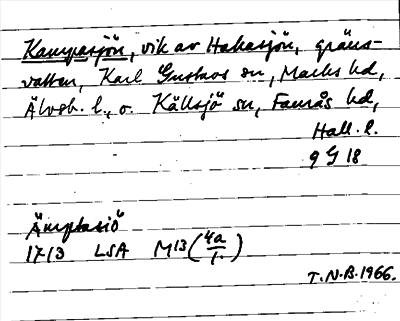 Kampasjön, vik av Hakasjön, gräns-
vatten, Karl Gustavs sn, Marks hd,
Älvsb. l., o. Källsjö sn, Faurås hd,
Hall. l.
9 G 18
Ämptasiö
1713 LSA M13 (4a/1)
T.N.B. 1966.